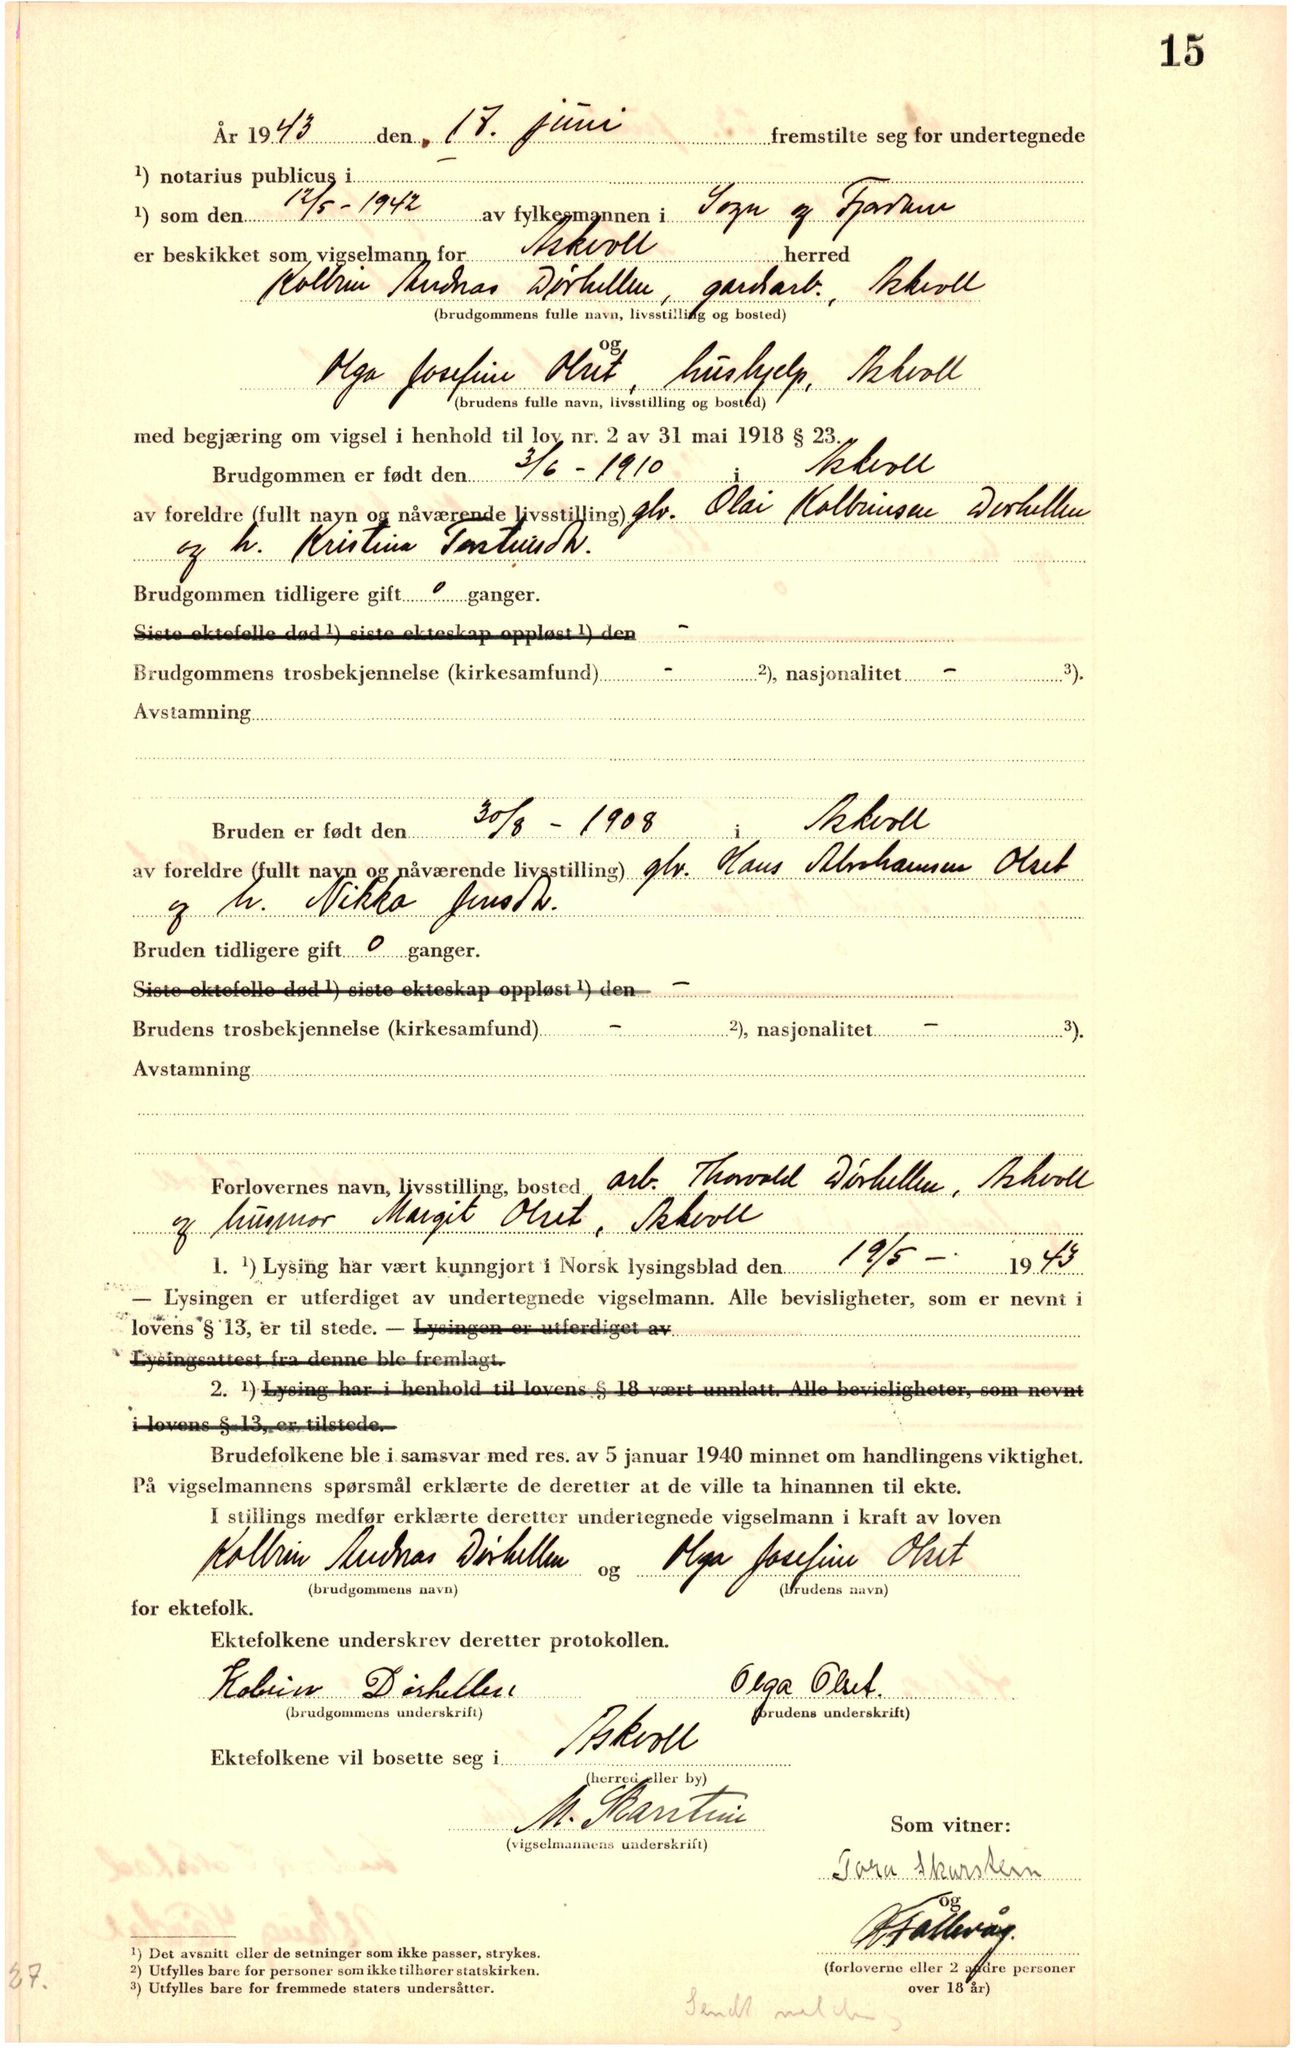 15
År 1943 den 17. juni fremstilte seg for undertegnede
¹) notarius publicus i –
¹) som den 12/5 - 1942 av fylkesmannen i Sogn og Fjordane
er beskikket som vigselmann for Askvoll herred
Kolbein Andreas Dørhellen, gardsarb., Askvoll
(brudgommens fulle navn, livsstilling og bosted)
og
Olga Josefine Olset, hushjelp, Askvoll
(brudens fulle navn, livsstilling og bosted)
med begjæring om vigsel i henhold til lov nr. 2 av 31 mai 1918 § 23.
Brudgommen er født den 3/6 - 1910 i Askvoll
av foreldre (fullt navn og nåværende livsstilling) gbr. Olai Kolbeinsen Dørhellen
og h. Kristina
Brudgommen tidligere gift 0 ganger.
Siste ektefelle død ¹) siste ekteskap oppløst ¹) den –
Brudgommens trosbekjennelse (kirkesamfund) – ²), nasjonalitet – ³).
Avstamning
Bruden er født den 30/8 - 1908 i Askvoll
av foreldre (fullt navn og nåværende livsstilling) gbr. Hans Abrahamsen Olset
og h. Nikka Jensdtr.
Bruden tidligere gift 0 ganger.
Siste ektefelle død ¹) siste ekteskap oppløst ¹) den –
Brudens trosbekjennelse (kirkesamfund) – ²), nasjonalitet – ³).
Avstamning
Forlovernes navn, livsstilling, bosted arb. Thorvald Dørhellen, Askvoll
og husmor Margit Olset, Askvoll
1. ¹) Lysing har vært kunngjort i Norsk lysingsblad den 19/5 – 1943
— Lysingen er utferdiget av undertegnede vigselmann. Alle bevisligheter, som er nevnt i
lovens § 13, er til stede. — Lysingen er utferdiget av
Lysingsattest fra denne ble fremlagt.
2. ¹) Lysing har i henhold til lovens § 18 vært unnlatt. Alle bevisligheter, som nevnt
i lovens § 13, er tilstede.
Brudefolkene ble i samsvar med res. av 5 januar 1940 minnet om handlingens viktighet.
På vigselmannens spørsmål erklærte de deretter at de ville ta hinannen til ekte.
I stillings medfør erklærte deretter undertegnede vigselmann i kraft av loven
Kolbein Andreas Dørhellen og Olga Josefine Olset
(brudgommens navn) (brudens navn)
for ektefolk.
Ektefolkene underskrev deretter protokollen.
Kolbein Dørhellen Olga Olset.
(brudgommens underskrift) (brudens underskrift)
Ektefolkene vil bosette seg i Askvoll
(herred eller by)
M. Skarstein
(vigselmannens underskrift)
Som vitner:
Tora Skarstein
og
Fallevåg.
(forloverne eller 2 andre personer
over 18 år)
¹) Det avsnitt eller de setninger som ikke passer, strykes.
²) Utfylles bare for personer som ikke tilhører statskirken.
³) Utfylles bare for fremmede staters undersåtter.
27.
Sendt melding